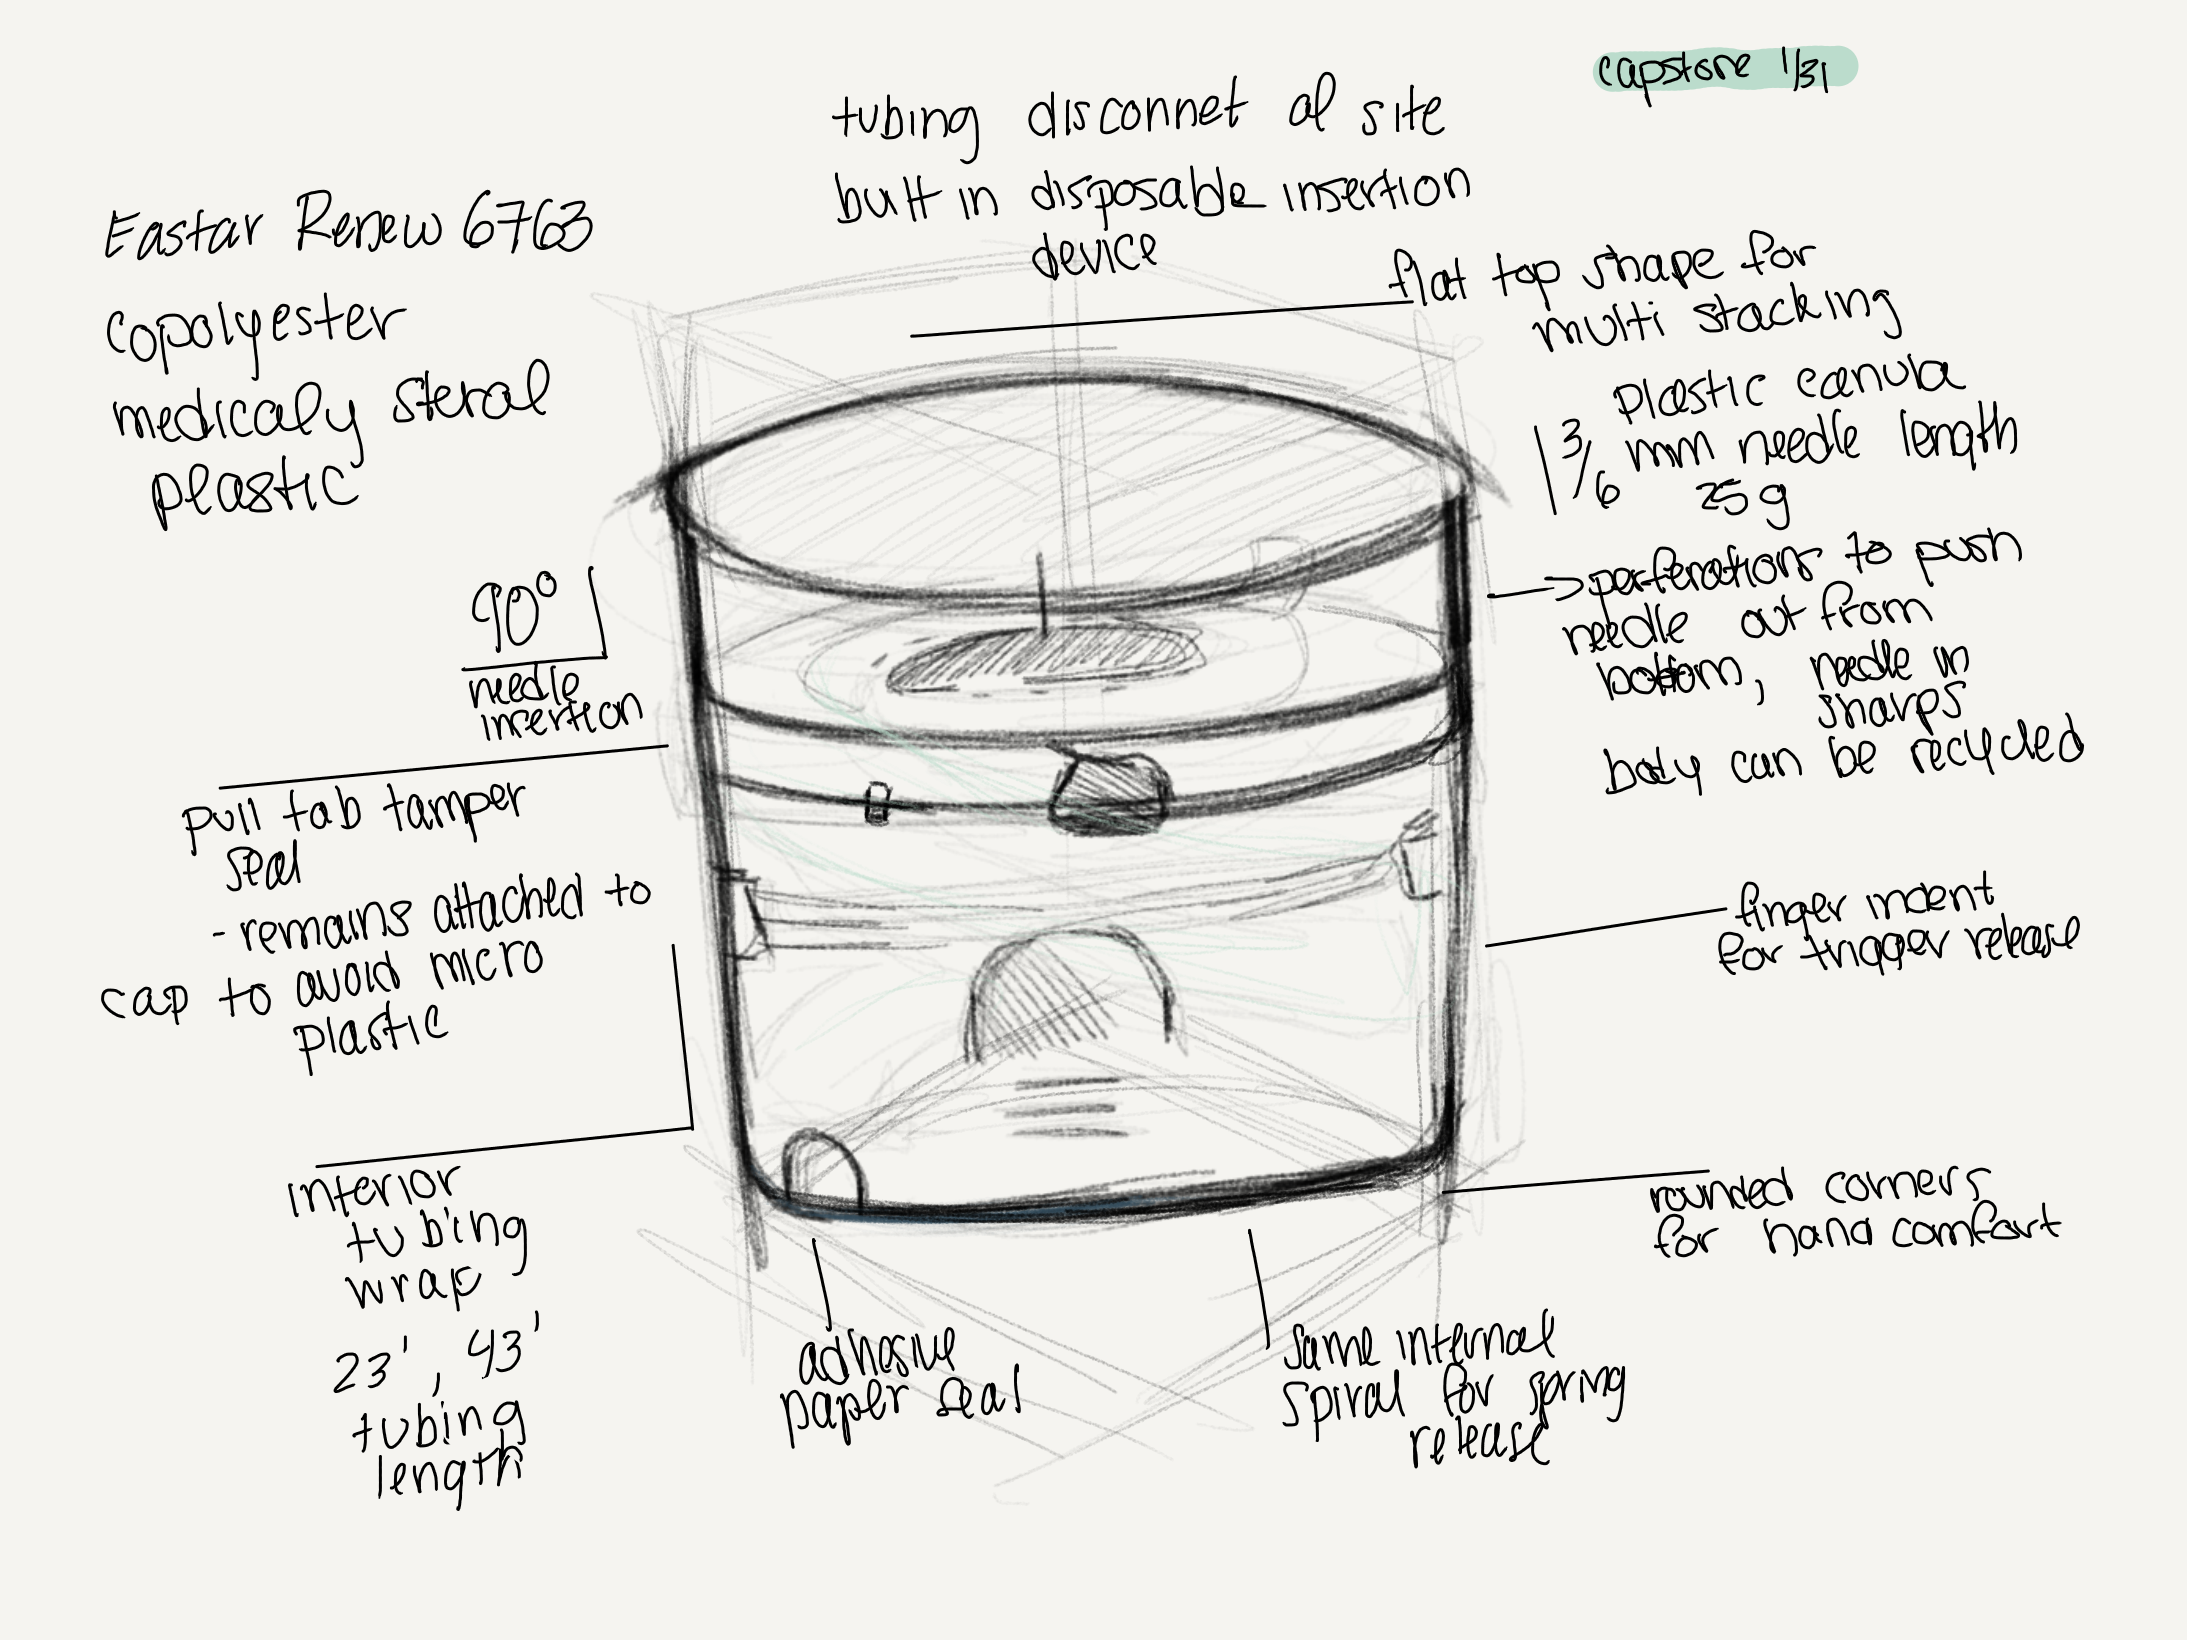 capstone 1/31
tubing disconnet at site
built in disposable insertion
device
Eastar Renew 6763
copolyester
medicaly steral
plastic
flat top shape for
multi stacking
plastic canula
3/6 mm needle length
25 g
→ perferations to push
needle out from
bottom, needle in
sharps
body can be recycled
90°
needle
insertion
pull tab tamper
seal
- remains attached to
cap to avoid micro
plastic
finger indent
for trigger release
interior
tubing
wrap
23', 43'
tubing
length
rounded corners
for hand comfort
adhesive
paper seal
same internal
spiral for spring
release